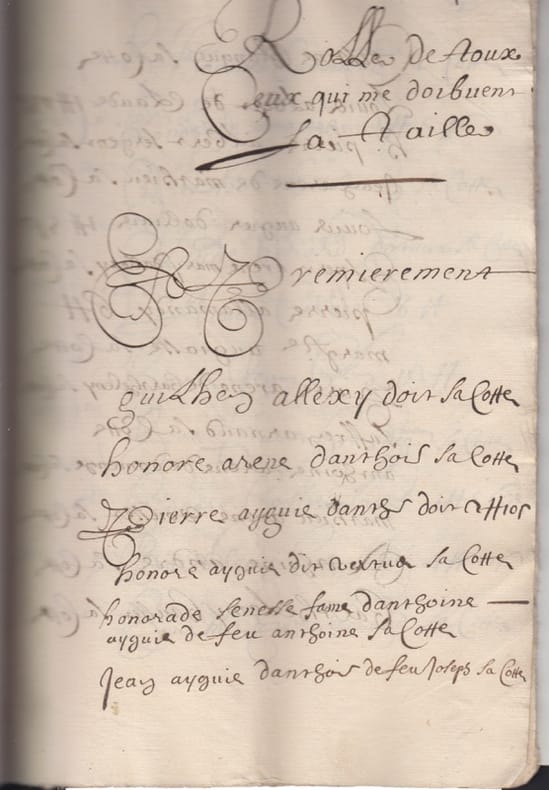 Rolle de toux
Ceux qui me doibuent
La Taille
Premierement
guilhen allexy doit sa Cotte
honore arene danthois sa Cotte
Pierre ayguie danths doit
honore ayguie dit vertus sa Cotte
honorade senesse fame danthoine
ayguie de feu anthoine sa Cotte
Jean ayguie danthois de feu Joseph sa Cotte